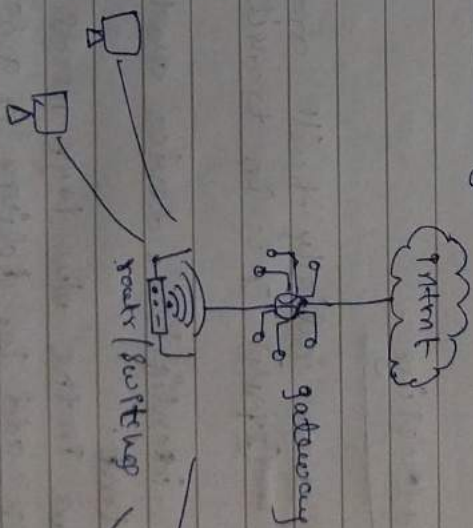 Intrnt
gateway
router/Switching